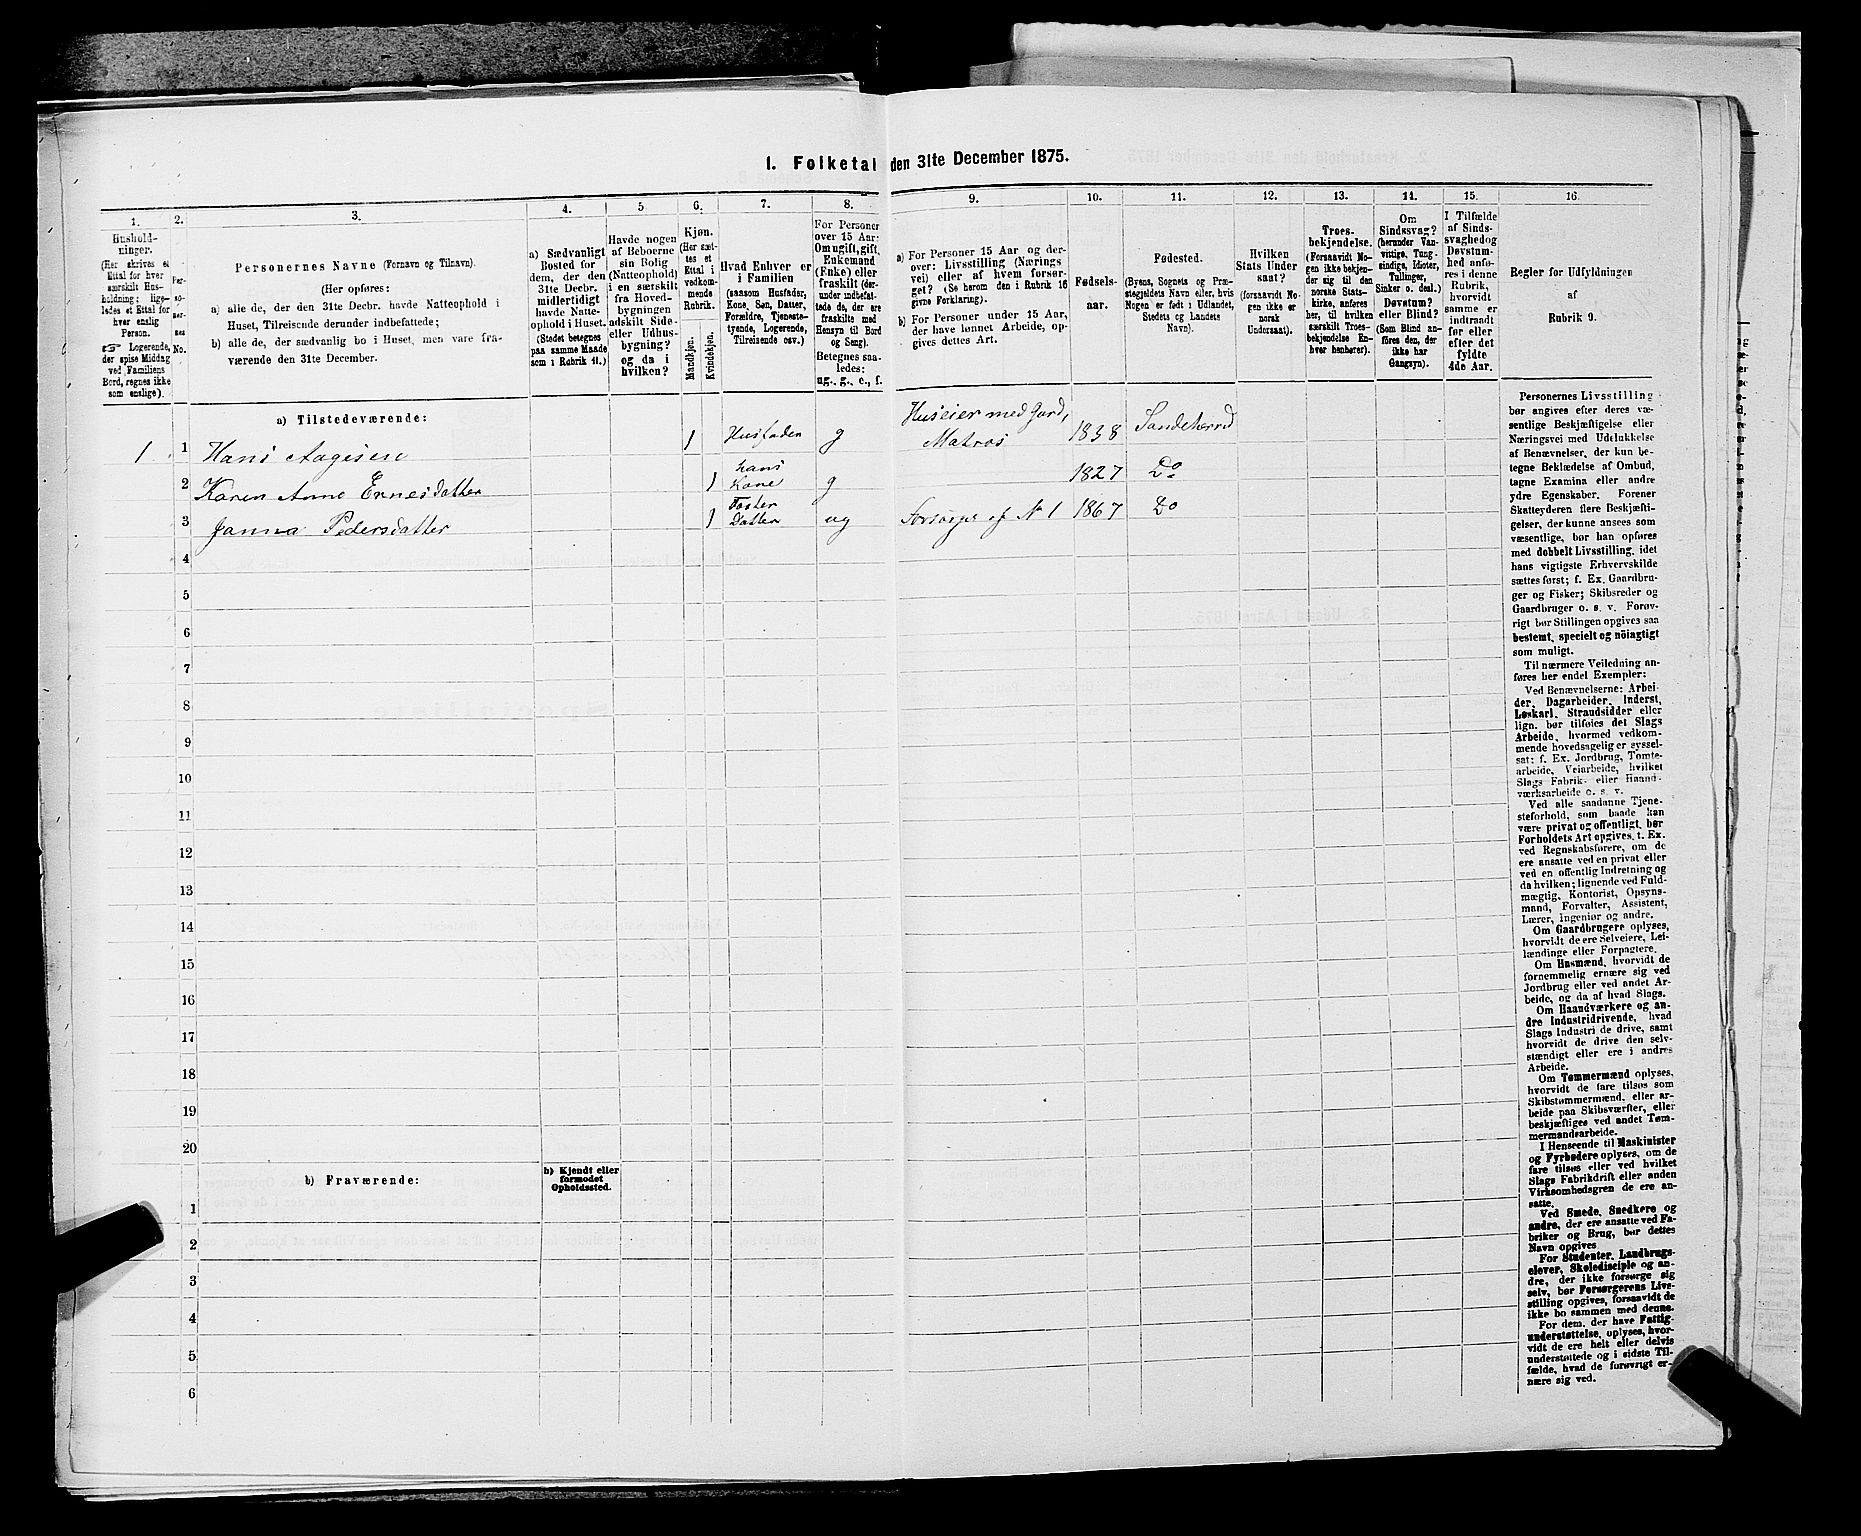 1. Folketal den 31te December 1875.
1.
2.
3.
4.
5
6.
7.
8.
9.
10.
11.
12.
13.
14.
15.
16.
Hushold-
ninger.
(Her skrives et
Ettal for hver
særskilt Hus-
holdning; lige-
ledes et Ettal for
hver enslig
Person.
☞ Logerende,
der spise Middag
ved Familiens
Bord, regnes ikke
som enslige).
Per-
so-
ner-
nes
No.
Personernes Navne (Fornavn og Tilnavn).
(Her opføres:
a) alle de, der den 31te Decbr. havde Natteophold i
Huset, Tilreisende derunder indbefattede;
b) alle de, der sædvanlig bo i Huset, men vare fra-
værende den 31te December.
a) Sædvanligt
Bosted for
dem, der den
31te Decbr.
midlertidigt
havde Natte-
ophold i Huset.
(Stedet betegnes
paa samme Maade
som i Rubrik 11.)
Havde nogen
af Beboerne
sin Bolig
(Natteophold)
i en særskilt
fra Hoved-
bygningen
adskilt Side-
eller Udhus-
bygning?
og da i
hvilken?
Kjøn.
(Her sæt-
tes et
Ettal i
vedkom-
mende
Rubrik.
Mandkjøn.
Kvindekjøn.
Hvad Enhver er
i Familien
(saasom Husfader,
Kone, Søn, Datter,
Forældre, Tjeneste-
tyende, Logerende,
Tilreisende osv.)
For Personer
over 15 Aar:
Om ugift, gift,
Enkemand
(Enke) eller
fraskilt (der-
under indbefat-
tede de, der ere
fraskilte med
Hensyn til Bord
og Seng).
Betegnes saa-
ledes:
ug., g., e., f.
a) For Personer 15 Aar og der-
over: Livsstilling (Nærings
vei) eller af hvem forsør-
get? (Se herom den i Rubrik 16
givne Forklaring).
b) For Personer under 15 Aar,
der have lønnet Arbeide, op-
gives dettes Art.
Fødsels-
aar.
Fødested.
(Byens, Sognets og Præ-
stegjeldets Navn eller, hvis
Nogen er født i Udlandet,
Stedets og Landets
Navn).
Hvilken
Stats Under
saat?
(forsaavidt No-
gen ikke er
norsk
Undersaat).
Troes-
bekjendelse.
(Forsaavidt No-
gen ikke bekjen-
der sig til den
norske Stats-
kirke, anføres
her, til hvilken
særskilt Troes-
bekjendelse En-
hver henhører).
Om
Sindssvag?
(herunder Van-
vittige, Tung-
sindige, Idioter,
Tullinger,
Sinker o. desl.)
Døvstum?
eller Blind?
(Som Blind an-
føres den, der
ikke har
Gangsyn).
I Tilfælde
af Sinds-
svaghed og
Døvstum-
hed anfø-
res i denne
Rubrik,
hvorvidt
samme er
indtraadt
før eller
efter det
fyldte
4de Aar.
Regler for Udfyldningen
af
Rubrik 9.
a) Tilstedeværende:
1 1 Hans Aagesen 1 Husfader g Huseier med Jord, Matros 1838 Sandeherred
2 Karen Anne Ernesdatter 1 hans Kone g 1827 Do
3 Janna Pedersdatter 1 Foster Datter ug Forsørges af No 1 1867 Do
4
5
6
7
8
9
10
11
12
13
14
15
16
17
18
19
20
b) Fraværende:
b) Kjendt eller
formodet
Opholdssted.
1
2
3
4
5
6
Personernes Livsstilling
bør angives efter deres væ-
sentlige Beskjæftigelse eller
Næringsvei med Udelukkelse
af Benævnelser, der kun be-
tegne Beklædelse af Ombud,
tagne Examina eller andre
ydre Egenskaber. Forener
Skatteyderen flere Beskjæfti-
gelser, der kunne ansees som
væsentlige, bør han opføres
med dobbelt Livsstilling, idet
hans vigtigste Erhvervskilde
sættes først; f. Ex. Gaardbru-
ger og Fisker; Skibsreder og
Gaardbruger o. s. v. Forøv-
rigt bør Stillingen opgives saa
bestemt, specielt og nöiagtigt
som muligt.
Til nærmere Veiledning an-
føres her endel Exempler:
Ved Benævnelserne: Arbei-
der, Dagarbeider, Inderst,
Løskarl, Strandsidder eller
lign. bør tilføies det Slags
Arbeide, hvormed vedkom-
mende hovedsagelig er syssel-
sat; f. Ex. Jordbrug, Tomte-
arbeide, Veiarbeide, hvilket
Slags Fabrik- eller Haand-
værksarbeide o. s. v.
Ved alle saadanne Tjene-
steforhold, som baade kan
være privat og offentligt, bør
Forholdets Art opgives, t. Ex.
ved Regnskabsførere, om de
ere ansatte ved en privat eller
ved en offentlig Indretning og
da hvilken; lignende ved Fuld-
mægtig, Kontorist, Opsyns-
mand, Forvalter, Assistent,
Lærer, Ingeniør og andre.
Om Gaardbrugere oplyses,
hvorvidt de ere Selveiere, Lei-
lændinge eller Forpagtere.
Om Husmænd, hvorvidt de
fornemmelig ernære sig ved
Jordbrug eller ved andet Ar-
beide, og da af hvad Slags.
Om Haandværkere og an-
dre Industridrivende, hvad
Slags Industri de drive, samt
hvorvidt de drive den selv-
stændigt eller ere i andres
Arbeide.
Om Tømmermænd oplyses,
hvorvidt de fare tilsøs som
Skibstømmermænd, eller ar-
beide paa Skibsværfter, eller
beskjæftiges ved andet Tøm-
mermandsarbeide.
I Henseende til Maskinister
og Fyrbødere oplyses, om de
fare tilsøs eller ved hvilket
Slags Fabrikdrift eller anden
Virksomhedsgren de ere an-
satte.
Ved Smede, Snedkere og
andre, der ere ansatte ved Fa-
briker og Brug, bør dettes
Navn opgives
For Studenter, Landbrugs-
elever, Skoledisciple og an-
dre, der ikke forsørge sig
selv, bør Forsørgerens Livs-
stilling opgives, forsaavidt de
ikke bo sammen med denne.
For dem, der have Fattig-
understøttelse, oplyses, hvor-
vidt de ere helt eller delvis
understøttede og i sidste Til-
fælde, hvad de forøvrigt er-
nære sig ved.